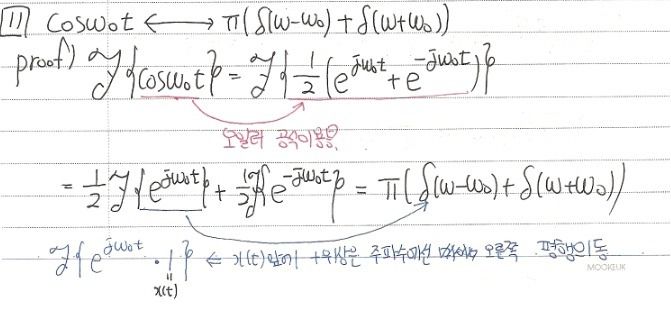 [11] cosω₀t ⟷ π(δ(ω-ω₀)+δ(ω+ω₀))
proof) ℱ{cosω₀t} = ℱ{1/2(e^{jω₀t}+e^{-jω₀t})}
오일러 공식이용
= 1/2 ℱ{e^{jω₀t}} + 1/2 ℱ{e^{-jω₀t}} = π(δ(ω-ω₀)+δ(ω+ω₀))
ℱ{e^{jω₀t}·1} ← x(t)앞에 +위상은 주파수에선 오른쪽 평행이동
MOOKEUK
"
x(t)